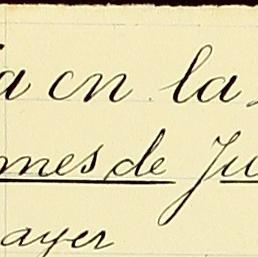 a en la
mes de Ju
ayer